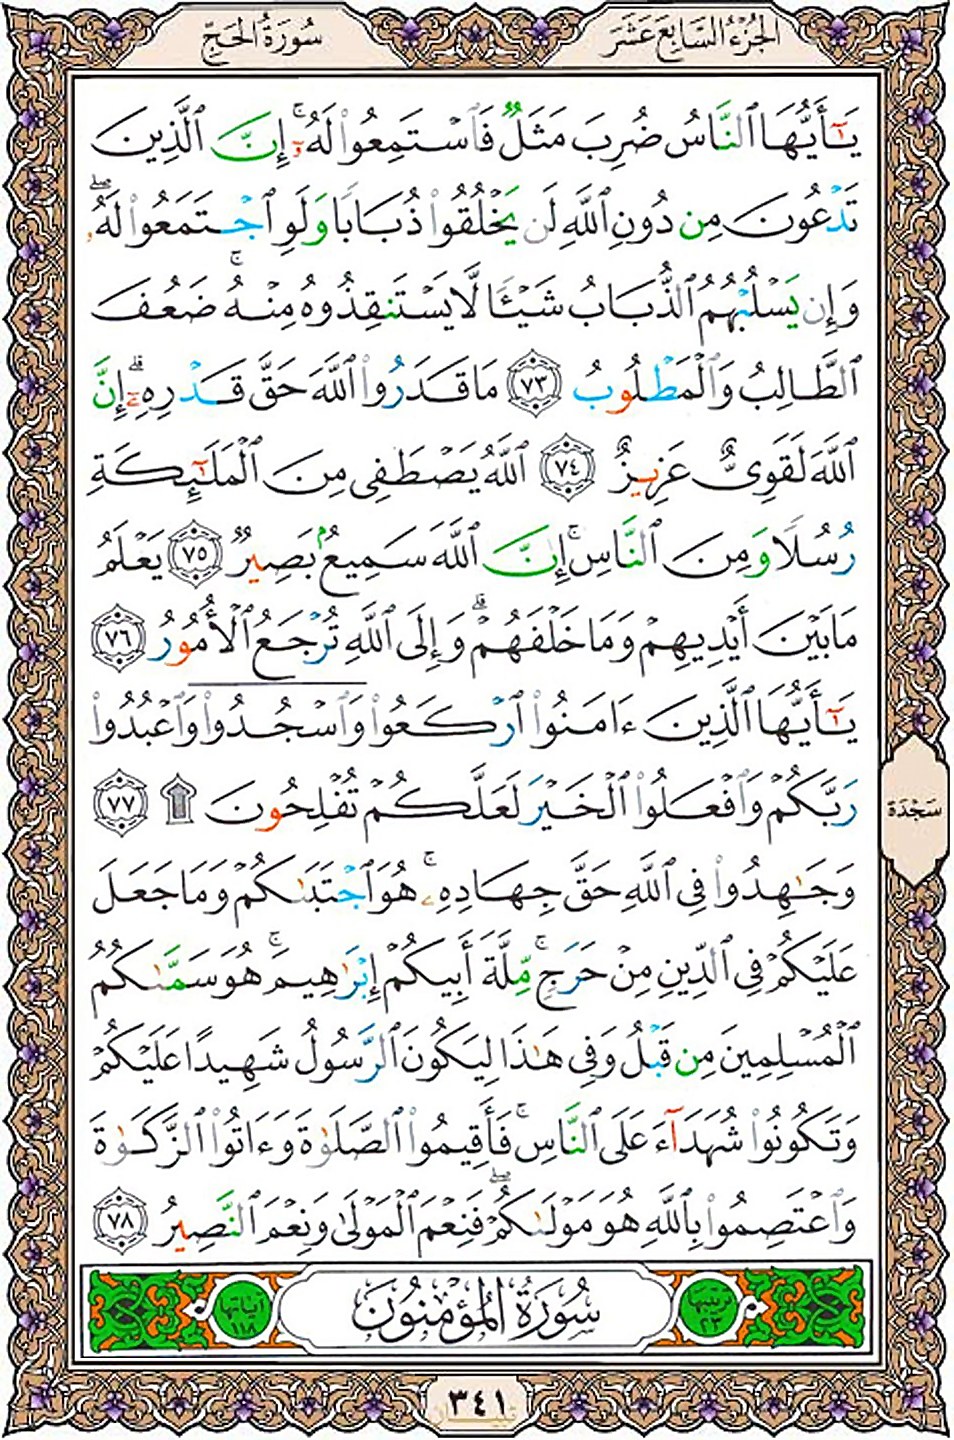 الجزء السابع عشر
سورة الحج
يَٰٓأَيُّهَا ٱلنَّاسُ ضُرِبَ مَثَلٌ فَٱسْتَمِعُوا۟ لَهُۥٓ ۚ إِنَّ ٱلَّذِينَ
تَدْعُونَ مِن دُونِ ٱللَّهِ لَن يَخْلُقُوا۟ ذُبَابًا وَلَوِ ٱجْتَمَعُوا۟ لَهُۥ ۖ
وَإِن يَسْلُبْهُمُ ٱلذُّبَابُ شَيْـًٔا لَّا يَسْتَنقِذُوهُ مِنْهُ ۚ ضَعُفَ
ٱلطَّالِبُ وَٱلْمَطْلُوبُ ٧٣ مَا قَدَرُوا۟ ٱللَّهَ حَقَّ قَدْرِهِۦٓ ۗ إِنَّ
ٱللَّهَ لَقَوِىٌّ عَزِيزٌ ٧٤ ٱللَّهُ يَصْطَفِى مِنَ ٱلْمَلَٰٓئِكَةِ
رُسُلًا وَمِنَ ٱلنَّاسِ ۚ إِنَّ ٱللَّهَ سَمِيعٌۢ بَصِيرٌ ٧٥ يَعْلَمُ
مَا بَيْنَ أَيْدِيهِمْ وَمَا خَلْفَهُمْ ۗ وَإِلَى ٱللَّهِ تُرْجَعُ ٱلْأُمُورُ ٧٦
يَٰٓأَيُّهَا ٱلَّذِينَ ءَامَنُوا۟ ٱرْكَعُوا۟ وَٱسْجُدُوا۟ وَٱعْبُدُوا۟
رَبَّكُمْ وَٱفْعَلُوا۟ ٱلْخَيْرَ لَعَلَّكُمْ تُفْلِحُونَ ۩ ٧٧
سجدة
وَجَٰهِدُوا۟ فِى ٱللَّهِ حَقَّ جِهَادِهِۦ ۚ هُوَ ٱجْتَبَىٰكُمْ وَمَا جَعَلَ
عَلَيْكُمْ فِى ٱلدِّينِ مِنْ حَرَجٍ ۚ مِّلَّةَ أَبِيكُمْ إِبْرَٰهِيمَ ۚ هُوَ سَمَّىٰكُمُ
ٱلْمُسْلِمِينَ مِن قَبْلُ وَفِى هَٰذَا لِيَكُونَ ٱلرَّسُولُ شَهِيدًا عَلَيْكُمْ
وَتَكُونُوا۟ شُهَدَآءَ عَلَى ٱلنَّاسِ ۚ فَأَقِيمُوا۟ ٱلصَّلَوٰةَ وَءَاتُوا۟ ٱلزَّكَوٰةَ
وَٱعْتَصِمُوا۟ بِٱللَّهِ هُوَ مَوْلَىٰكُمْ ۖ فَنِعْمَ ٱلْمَوْلَىٰ وَنِعْمَ ٱلنَّصِيرُ ٧٨
ترتيبها ٢٣
سُورَةُ الْمُؤْمِنُونَ
آياتها ١١٨
٣٤١
تبيان